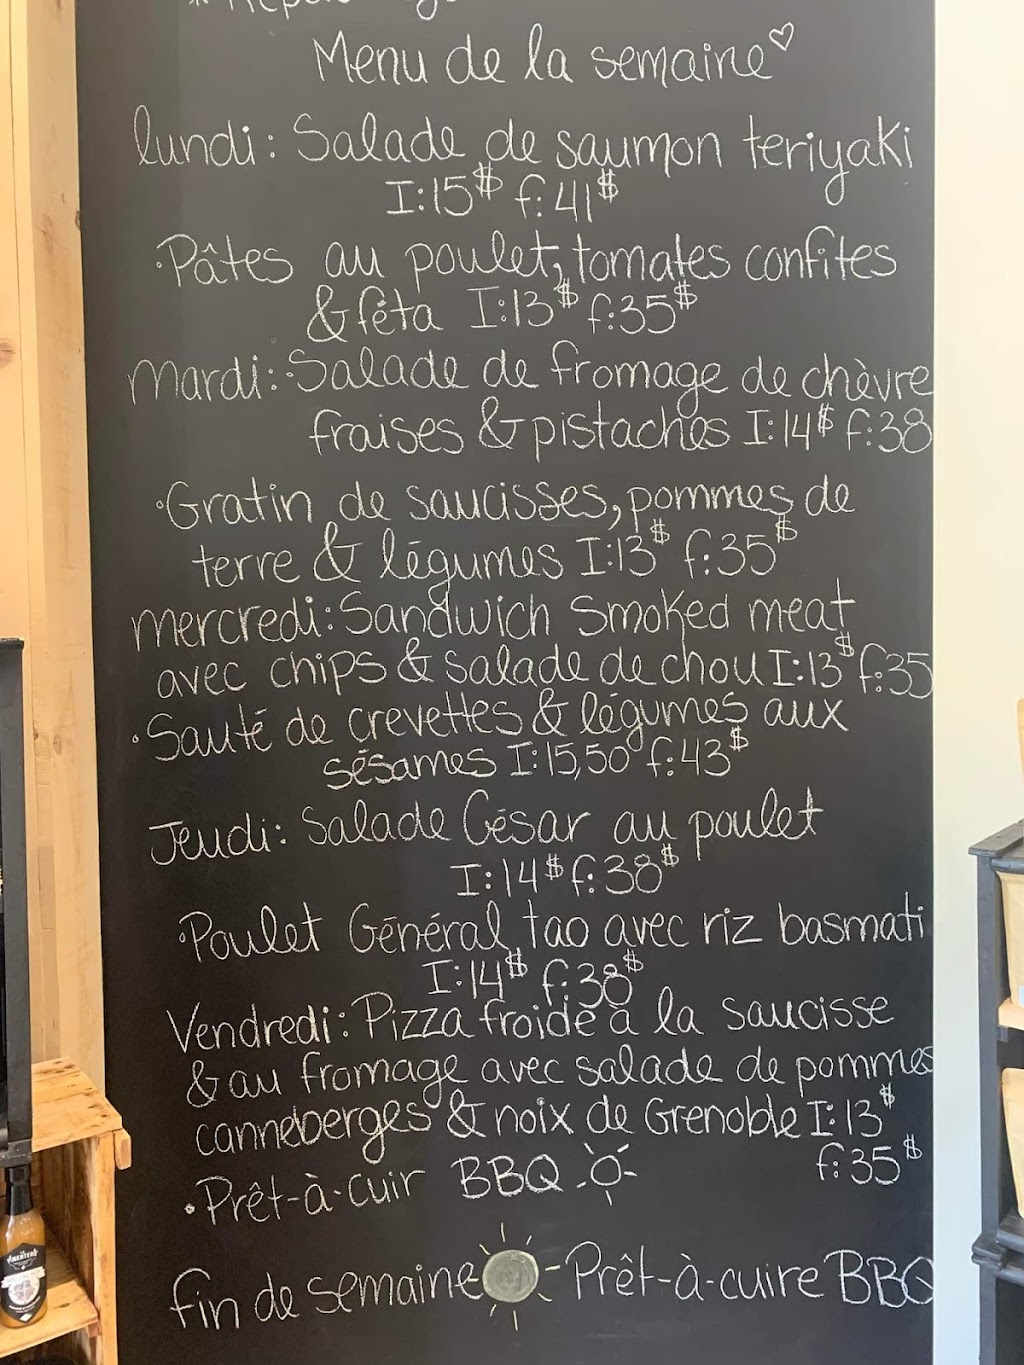 Menu de la semaine
lundi: Salade de saumon teriyaki
I:15$ f:41$
·Pâtes au poulet, tomates confites
& féta I:13$ f:35$
mardi: ·Salade de fromage de chèvre
fraises & pistaches I:14$ f:38
·Gratin de saucisses, pommes de
terre & légumes I:13$ f:35$
mercredi: Sandwich smoked meat
avec chips & salade de chou I:13$ f:35
·Sauté de crevettes & légumes aux
sésames I:15,50 f:43$
Jeudi: Salade César au poulet
I:14$ f:38$
·Poulet Général tao avec riz basmati
I:14$ f:38$
Vendredi: Pizza froide à la saucisse
& au fromage avec salade de pommes
canneberges & noix de Grenoble I:13$
f:35$
·Prêt-à-cuir BBQ
fin de semaine - Prêt-à-cuire BBQ